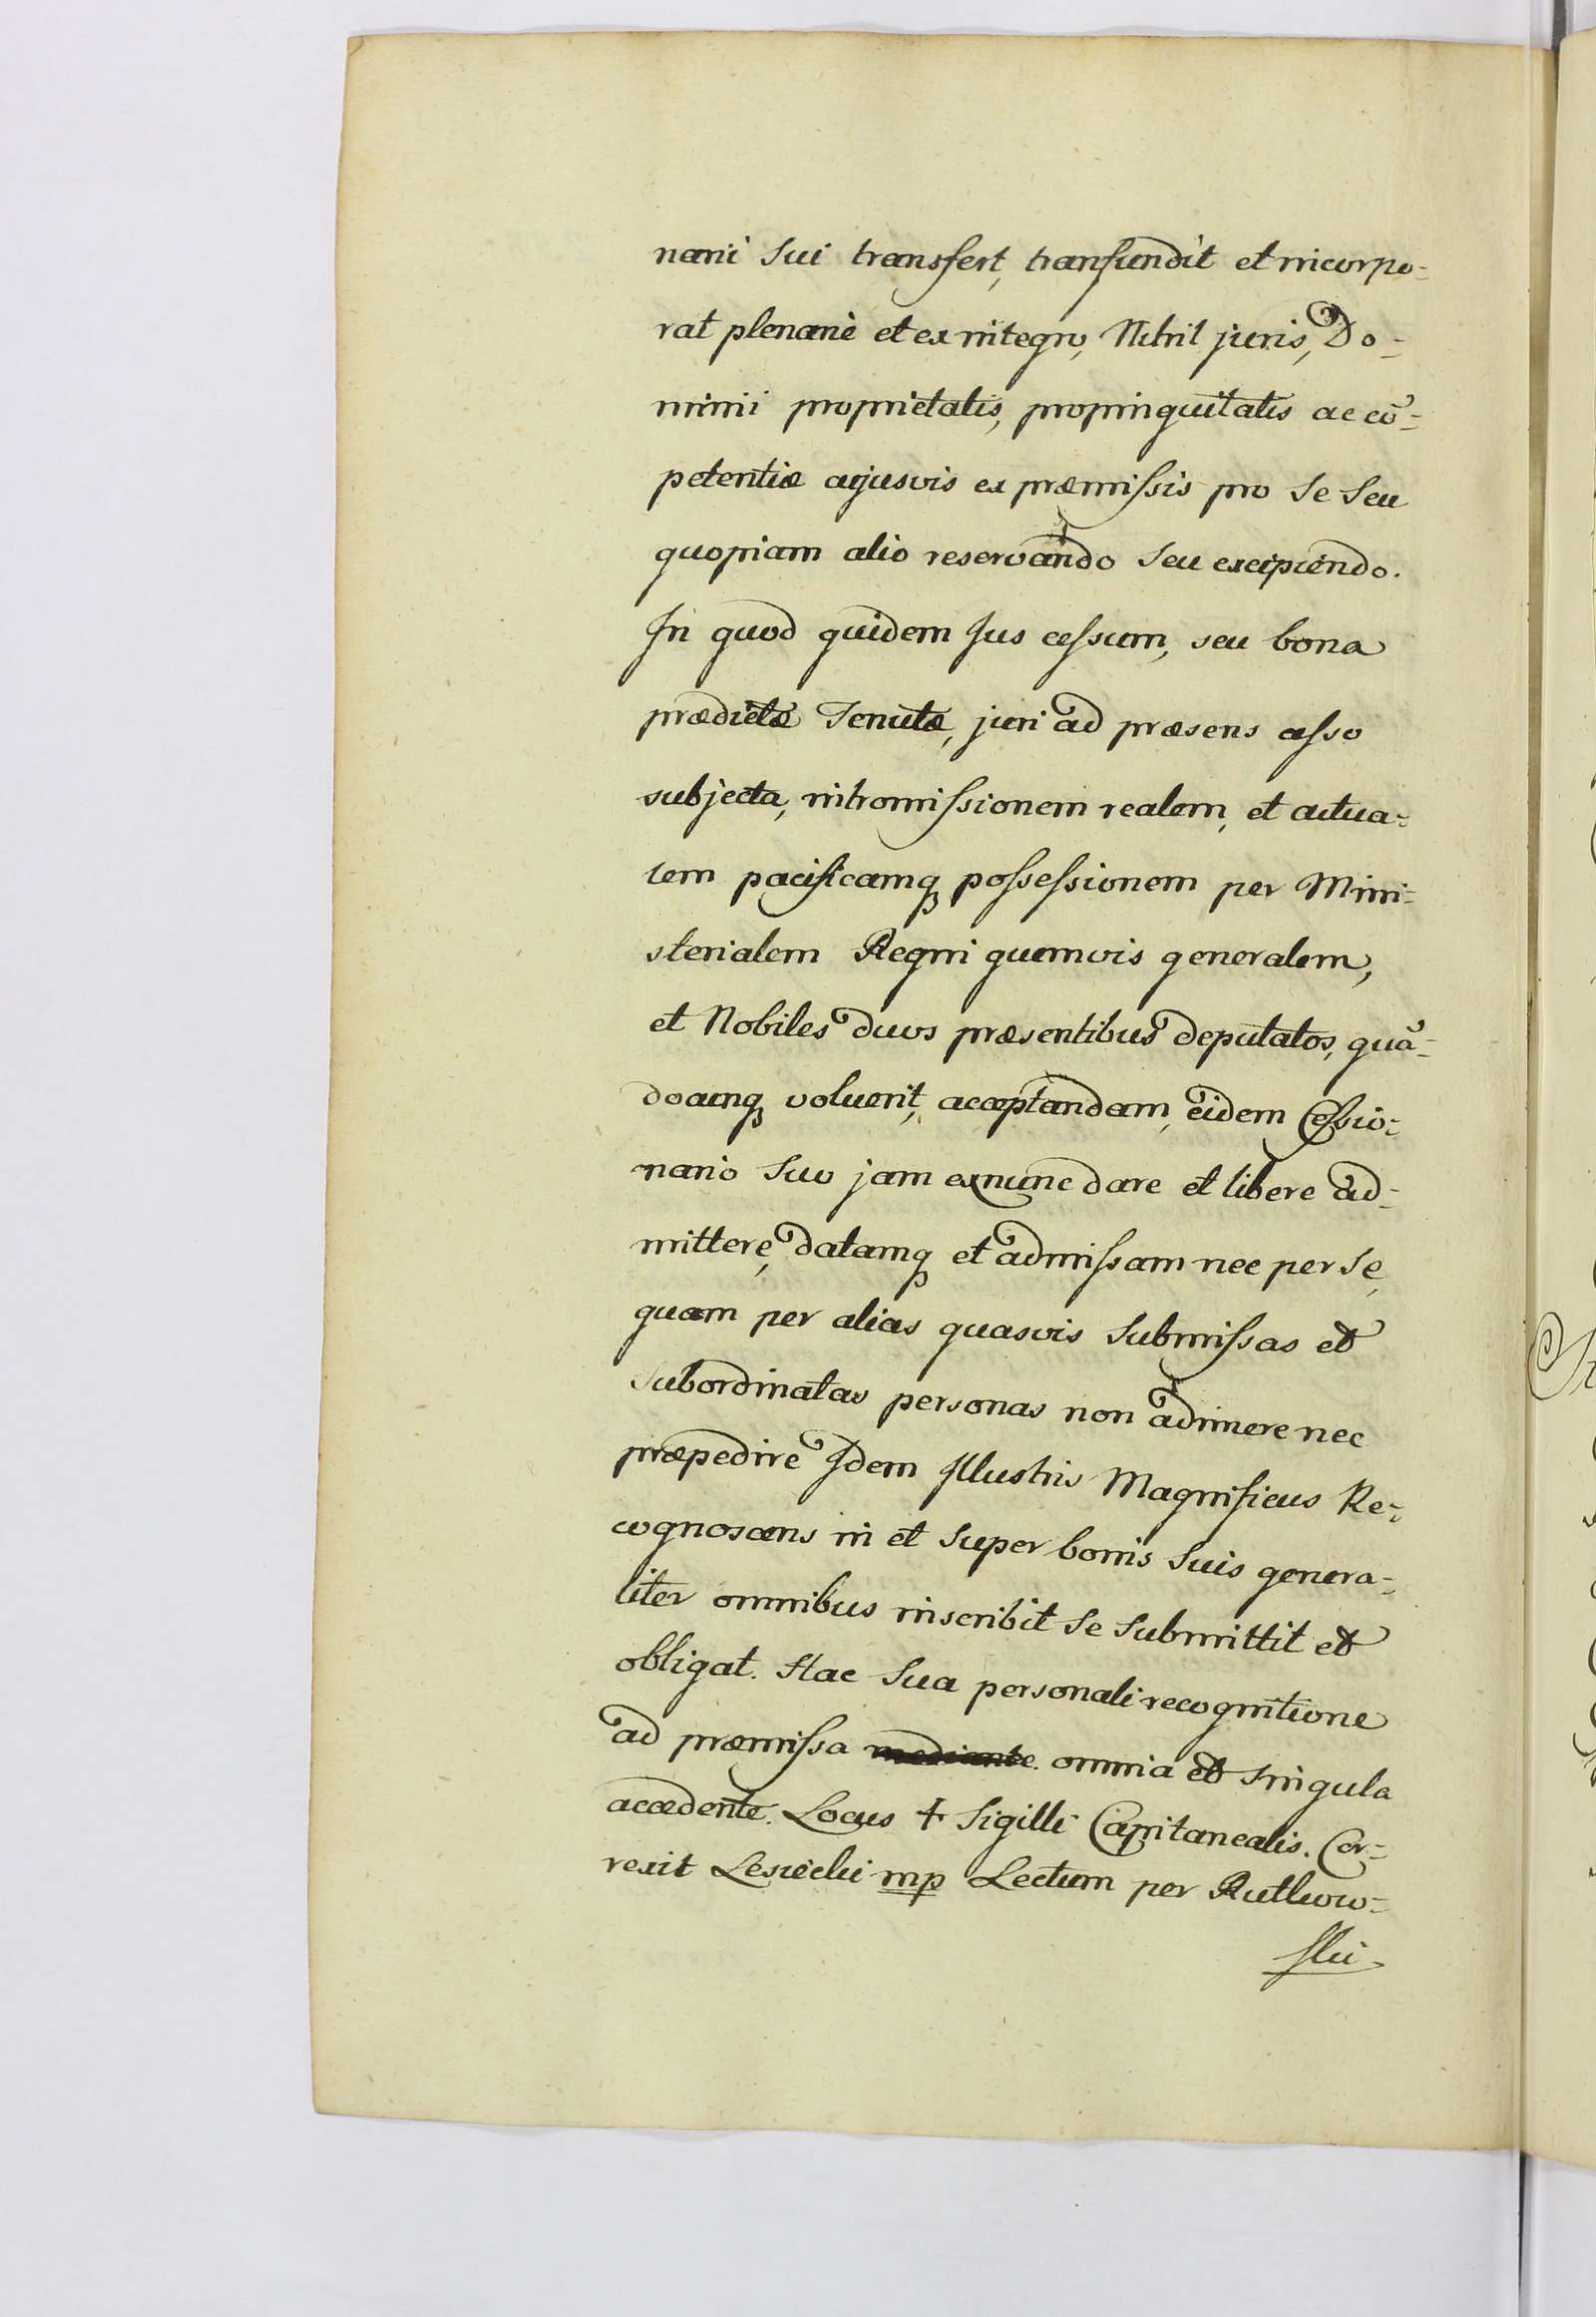 narii Sui transfert, transfundit et incorpo=
rat plenarie et ex integro, Nihil juris, Do=
minii proprietatis, propinquitatis ac cõ=
petentiæ cujusvis ex præmissis pro Se Seu
quopiam alio reservando Seu excipiendo.
In quod quidem Jus cessum, seu bona
prædictæ Tenutæ, juri ad præsens cesso
subjecta, intromissionem realem, et actua=
lem pacificamq possessionem per Mini=
sterialem Regni quemvis generalem,
et Nobiles duos præsentibus deputatos, quã=
docunq voluerit, acceptandam, eidem Cessio=
nario Suo jam exnunc dare et libere ad=
mittere, datamq et admissam nec per Se,
quam per alias quasvis Submissas et
Subordinatas personas non adimere nec
præpedire Idem Illustris Magnificus Re=
cognoscens in et Super bonis Suis genera=
liter omnibus inscribit Se Submittit et
obligat. Hac Sua personali recognitione
ad præmissa mediante omnia et singula
accedente. Locus + Sigilli Capitanealis. Cor=
rexit Lesiecki mp Lectum per Rutkow=
ski